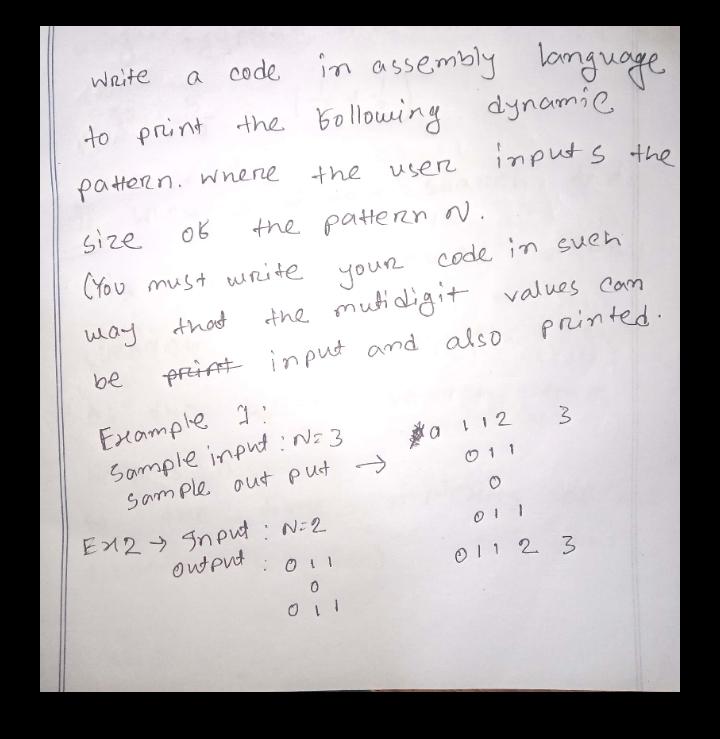 Write a code in assembly language
to print the following dynamic
pattern. Where the user inputs the
size of the pattern N.
(You must write your code in such
way that the mutidigit values can
be print input and also printed.
Example 1:
Sample input : N=3
Sample out put → 0 1 1 2 3
0 1 1
0
0 1 1
0 1 1 2 3
Ex2 → Input : N=2
Output : 0 1 1
0
0 1 1